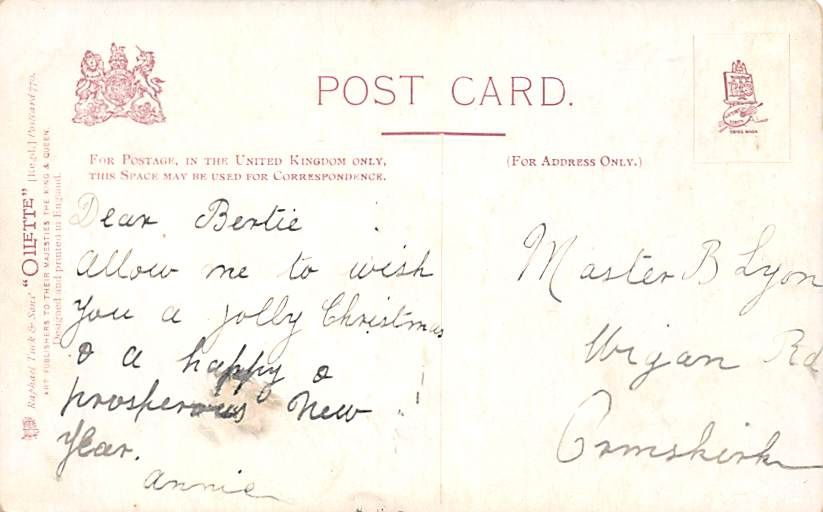 POST CARD.
FOR POSTAGE, IN THE UNITED KINGDOM ONLY,
THIS SPACE MAY BE USED FOR CORRESPONDENCE.
(FOR ADDRESS ONLY.)
Raphael Tuck & Sons' "OILETTE" [Regd.] Postcard 770.
ART PUBLISHERS TO THEIR MAJESTIES THE KING & QUEEN.
Designed and printed in England.
Dear Bertie
Allow me to wish
you a jolly Christmas
& a happy &
prosperous New
Year.
Annie
Master B Lyon
Wigan Rd
Ormskirk